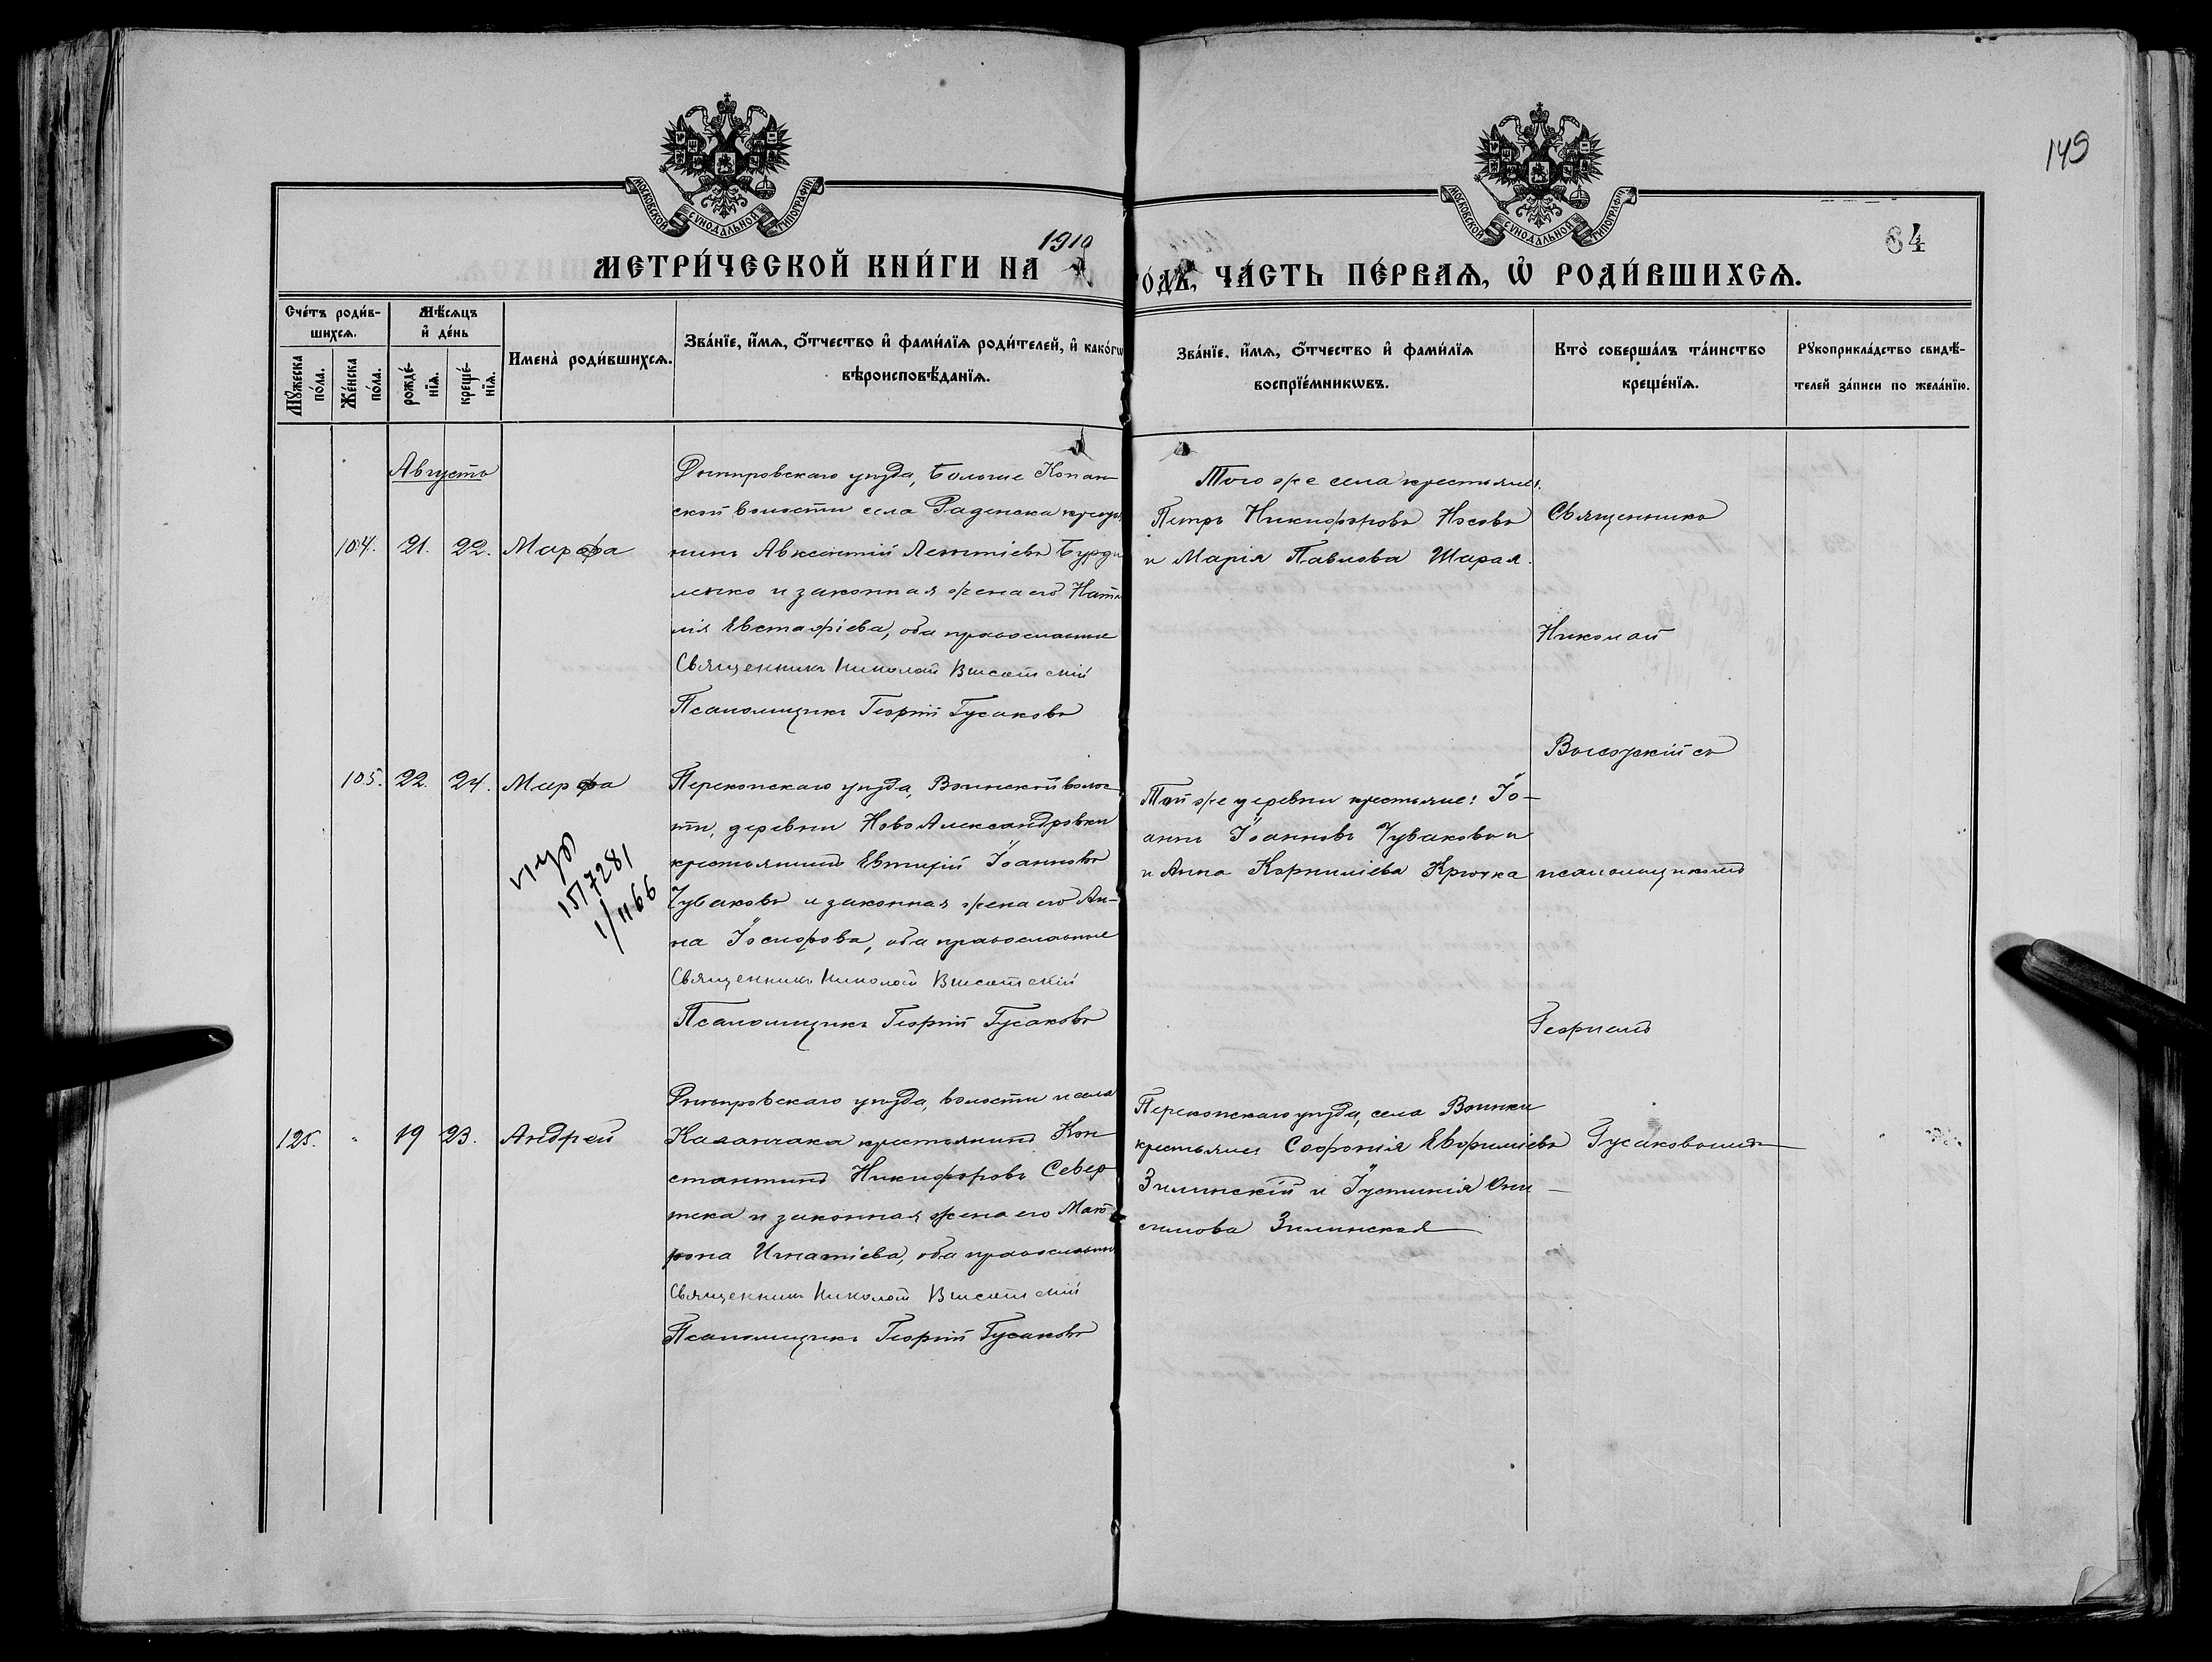 149
64
МОСКОВСКОЙ СѴНОДАЛЬНОЙ ТИПОГРАФІИ
МОСКОВСКОЙ СѴНОДАЛЬНОЙ ТИПОГРАФІИ
МЕТРИ́ЧЕСКОЙ КНИ́ГИ НА 1910 ГО́ДЪ, ЧА́СТЬ ПЕ́РВАѦ, Ѡ҆ РОДИ́ВШИХСѦ.
Сче́тъ роди́в-
шихсѧ.
Мꙋ́жеска
по́ла.
Же́нска
по́ла.
Мѣ́сѧцъ
и҆ де́нь
рожде́-
нїѧ.
креще́-
нїѧ.
Имена̀ роди́вшихсѧ.
Зва́нїе, и҆́мѧ, ѻ҆́тчество и҆ фами́лїѧ роди́телей, и҆ како́гѡ
вѣроисповѣ́данїѧ.
Зва́нїе, и҆́мѧ, ѻ҆́тчество и҆ фами́лїѧ
воспрїе́мникѡвъ.
Кто̀ соверша́лъ та́инство
креще́нїѧ.
Рꙋкоприкла́дство свидѣ́-
телей за́писи по жела́нїю.
Августъ
104. 21. 22. Марфа
Днѣпровскаго уѣзда, Больше Копан-
ской волости села Раденска крестья
нинъ Авксентій Леонтіевъ Бурди
ленко и законная жена его Ната
лія Евстафіева, оба православные
Священникъ Николай Высотскій
Псаломщикъ Георгій Гусаковъ
Того же села крестьяне:
Петръ Никифоровъ Носовъ
и Марія Павлова Шарая.
Священникъ
Николай
Высотскій съ
псаломщикомъ
Георгіемъ
Гусаковымъ
105. 22. 24. Марфа
1517281
1/1166
Перекопскаго уѣзда, Воинской волос-
ти, деревни НовоАлександровки
крестьянинъ Евтихій Іоанновъ
Чубаковъ и законная жена его Ан-
на Іосифова, оба православные
Священникъ Николай Высотскій
Псаломщикъ Георгій Гусаковъ
Той же деревни крестьяне: Іо-
аннъ Іоанновъ Чубаковъ и
и Анна Корниліева Крючка
125. " 19 23. Андрей
Днѣпровскаго уѣзда, волости и села
Каланчака крестьянинъ Кон
стантинъ Никифоровъ Север
тока и законная жена его Мат
рона Игнатіева, оба православны
Священникъ Николай Высотскій
Псаломщикъ Георгій Гусаковъ
Перекопскаго уѣзда, села Воинки
крестьяне: Софонія Евфиміевъ
Зилинскій и Іустинія Они-
симова Зилинская